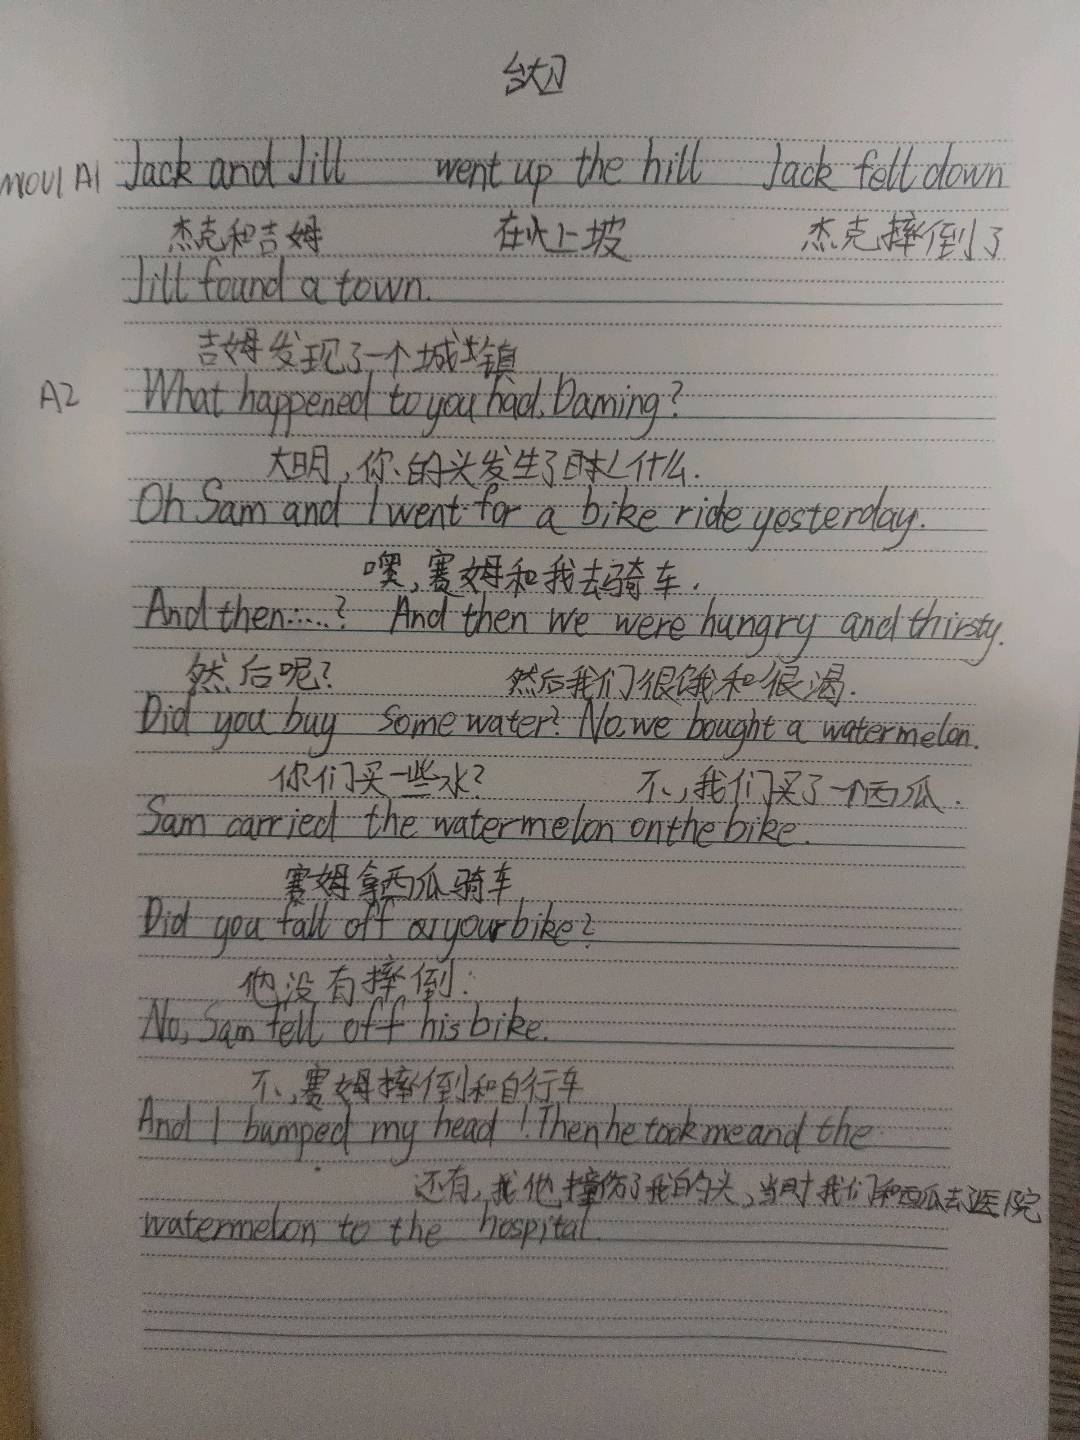 M04U1 A1 Jack and Jill went up the hill Jack fell down
杰克和吉姆 在火上坡 杰克摔倒了
Jill found a town.
吉姆发现了一个城镇
A2 What happened to you had, Daming?
大明,你的头发生了什么.
Oh Sam and I went for a bike ride yesterday.
噢,赛姆和我去骑车.
And then……? And then we were hungry and thirsty.
然后呢? 然后我们很饿和很渴.
Did you buy some water? No, we bought a watermelon.
你们买一些水? 不,我们买了一个西瓜.
Sam carried the watermelon on the bike.
赛姆拿西瓜骑车
Did you fall off your bike?
他没有摔倒.
No, Sam fell off his bike.
不,赛姆摔倒和自行车
And I bumped my head! Then he took me and the
还有,我他撞伤了我的头,当时我们和西瓜去了医院
watermelon to the hospital.